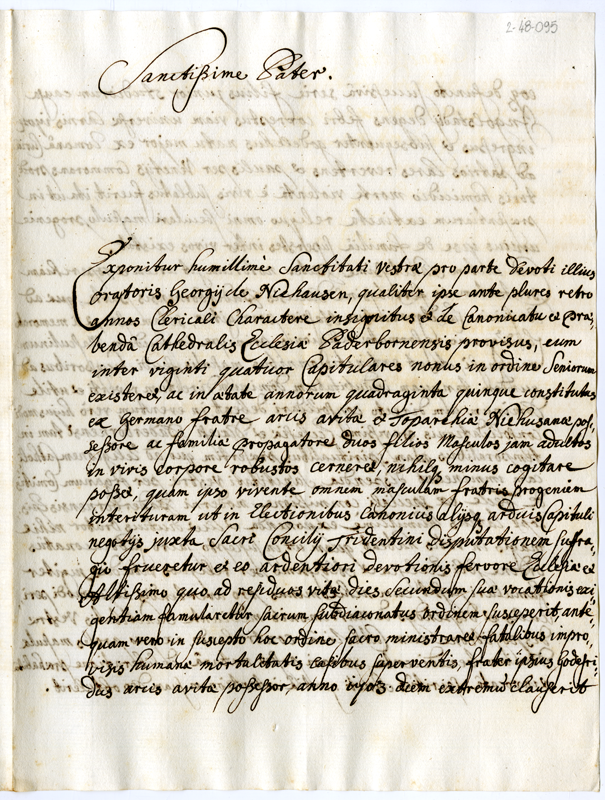 2-48-095
Sanctissime Pater.
Exponitur humillimè Sanctitati Vestræ pro parte devoti illius
oratoris Georgij de Niehausen, qualiter ipse ante plures retro
annos Clericali Charactere insignitus et de Canonicatu et Præ-
bendâ Cathedralis Ecclesiæ Paderbornensis provisus, cum
inter viginti quatuor Capitulares nonus in ordine Seniorum
existeret, ac in ætate annorum quadraginta quinque constitutus
ex Germano fratre arcis avitæ et Toparchiæ Niehusanæ pos-
sessore ac familiæ propagatore duos filios Masculos jam adultos
in vivis corpore robustos cerneret, nihilq minus cogitare
posset, quam ipso vivente omnem masculam fratris progeniem
interituram ut in Electionibus Canonicis alijsq arduis Capituli
negotijs juxta Sacri Concilij Tridentini disputationem suffra-
gio frueretur et eo ardentiori devotionis fervore Ecclesiæ et
Altissimo quo ad residuos vitæ dies secundum suæ vocationis exi-
gentiam famularetur sacrum subdiaconatus ordinem susceperit, ante-
quam vero in suscepto hoc ordine sacro ministraret fatalibus impro-
vizis humanæ mortalitatis casibus supervenientis, frater ipsius Godefri-
dus arcis avitæ possessor, anno 1703 diem extremum clauserit